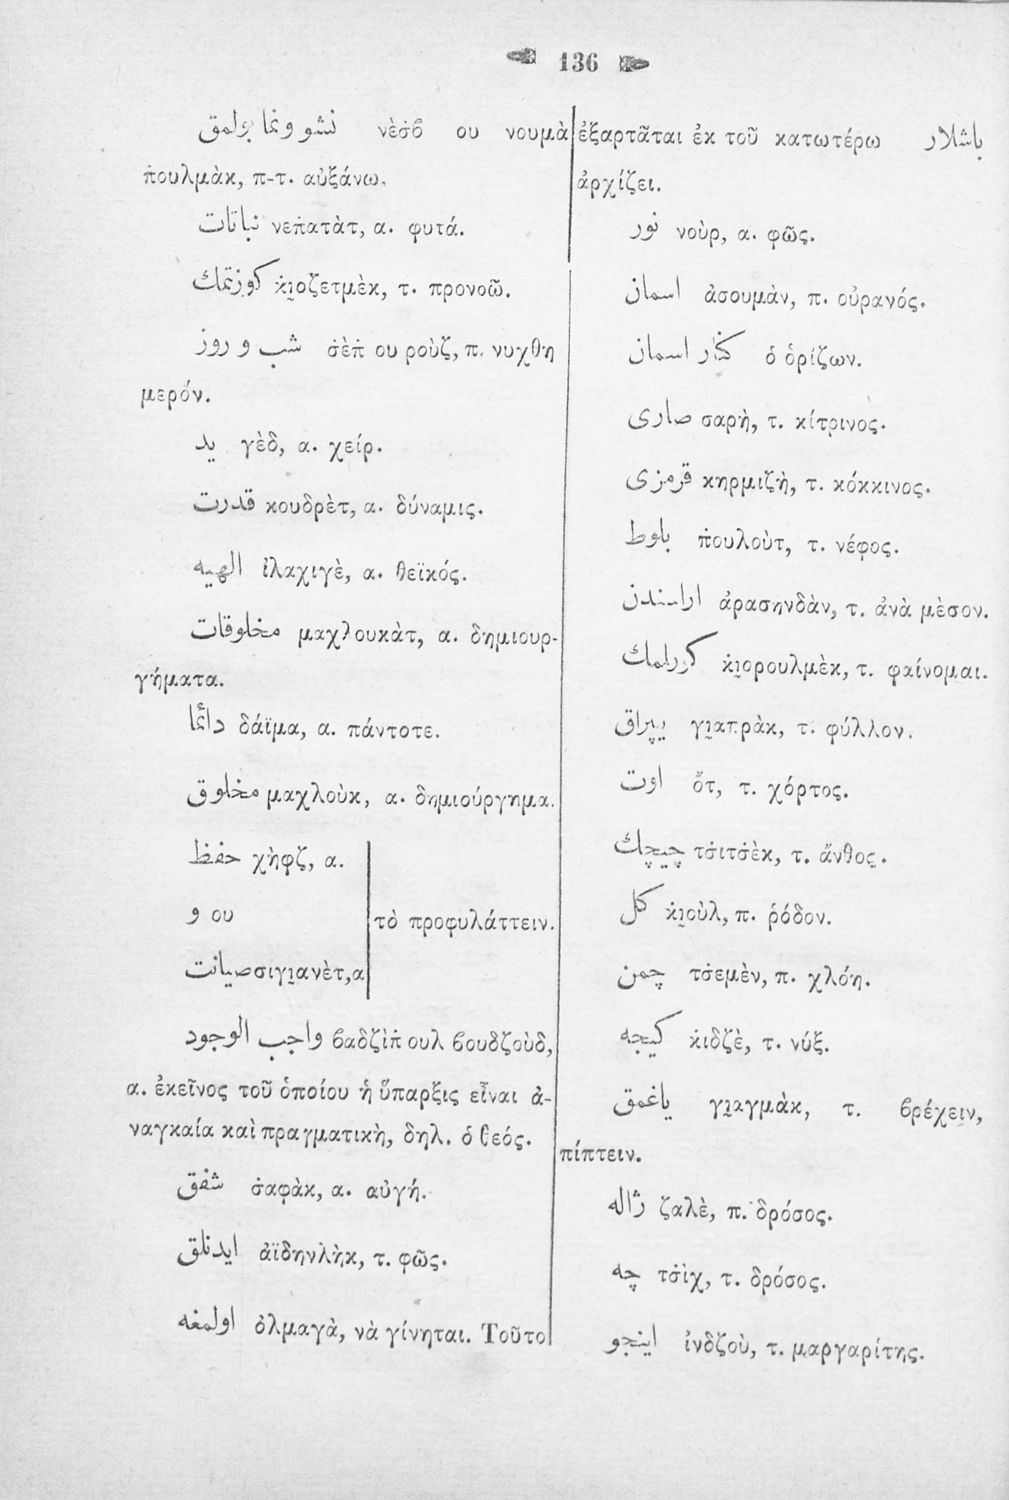 136
نشو ونما بولمق νὲσ̇ϐ ου νουμὰ
π̇ουλμὰκ, π-τ. αὐξάνω.
نباتات νεπ̇ατὰτ, α. φυτά.
كوزتمك κ̇ι̯οζετμὲκ, τ. προνοῶ.
شب و روز σ̇ὲπ̇ ου ροὺζ, π. νυχθη
μερόν.
يد γὲδ, α. χείρ.
قدرت κουδρὲτ, α. δύναμις.
الهيه ἰλαχιγὲ, α. θεϊκός.
مخلوقات μαχλουκὰτ, α. δημιουρ-
γήματα.
دائما δάϊμα, α. πάντοτε.
مخلوق μαχλοὺκ, α. δημιούργημα.
حفظ χὴφζ, α.
و ου
τὸ προφυλάττειν.
صيانت σιγι̯ανὲτ, α
واجب الوجود ϐαδζὶπ̇ ουλ ϐουδζοὺδ,
α. ἐκεῖνος τοῦ ὁποίου ἡ ὕπαρξις εἶναι ἀ-
ναγκαία καὶ πραγματικὴ, δηλ. ὁ θεός.
شفق σ̇αφὰκ, α. αὐγή.
ايدنلق ἀϊδηνλὴκ, τ. φῶς.
اولمغه ὀλμαγὰ, νὰ γίνηται. Τοῦτο
ἐξαρτᾶται ἐκ τοῦ κατωτέρω باشلار
ἀρχίζει.
نور νοὺρ, α. φῶς.
اسمان ἀσουμὰν, π. οὐρανός.
كنار اسمان ὁ ὁρίζων.
صارى σαρὴ, τ. κίτρινος.
قرمزى κηρμιζὴ, τ. κόκκινος.
بلوط π̇ουλοὺτ, τ. νέφος.
اراسندن ἀρασηνδὰν, τ. ἀνὰ μὲσον.
كورلمك κ̇ι̯ορουλμὲκ, τ. φαίνομαι.
يپراق γι̯απρὰκ, τ. φύλλον.
اوت ὄτ, τ. χόρτος.
چيچك τσ̇ιτσ̇ὲκ, τ. ἄνθος.
كل κ̇ι̯οὺλ, π. ῥόδον.
چمن τσ̇εμὲν, π. χλόη.
كيجه κ̇ιδζὲ, τ. νύξ.
ياغمق γι̯αγμὰκ, τ. ϐρέχειν,
πίπτειν.
ژاله ζαλὲ, π. δρόσος.
چه τσ̇ὶχ, τ. δρόσος.
اينجو ἰνδζοὺ, τ. μαργαρίτης.